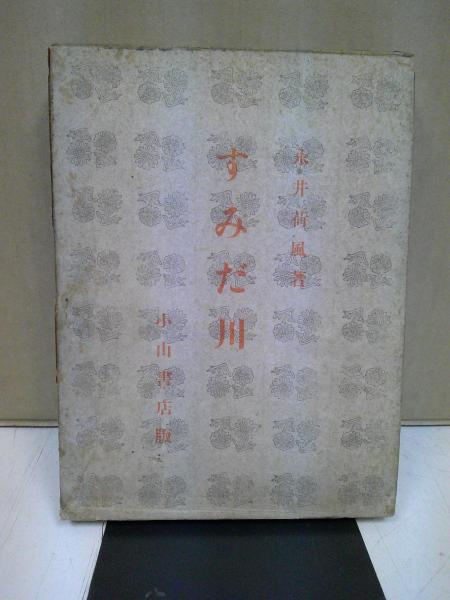 永井荷風著
すみだ川
小山書店版